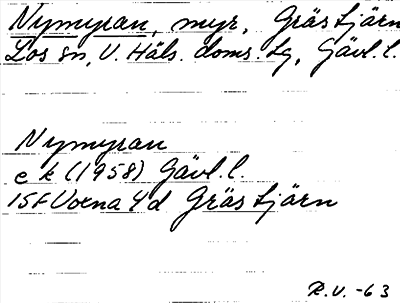 Nymyran, myr, Grästjärn
Los sn, V. Häls. doms. Lg, Gävl. l.
Nymyran
e k (1958) Gävl. l.
15F Voxna 4d Grästjärn
R.V. -63